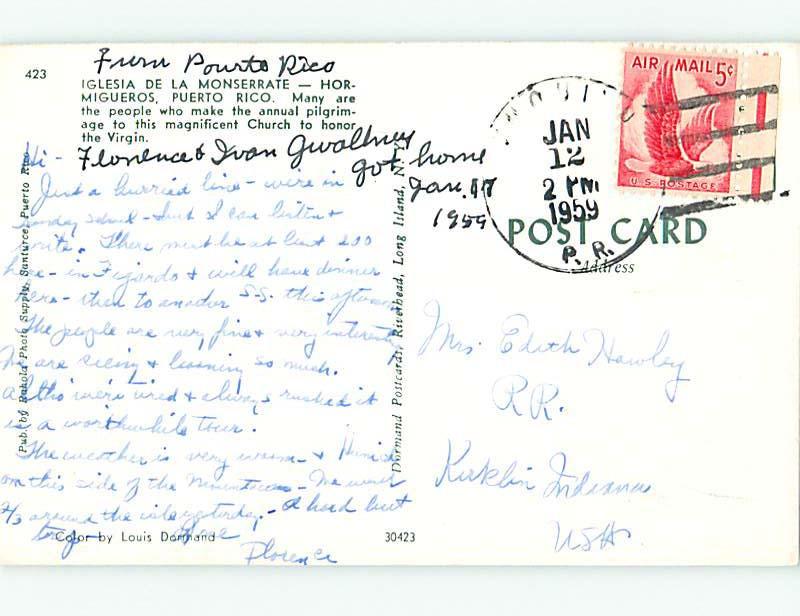 423
From Pourto Rico
IGLESIA DE LA MONSERRATE — HOR-
MIGUEROS, PUERTO RICO. Many are
the people who make the annual pilgrim-
age to this magnificent Church to honor
the Virgin.
Florence & Ivan Gwaltney
got home
Jan. 17
1959
Hi -
Just a hurried line - we're in
Sunday school - but I can listen &
write. There must be at least 200
here - in Fajardo & will have dinner
here - then to another S.S. this afternoon
The people are very fine & very interesting
We are seeing & learning so much.
Altho we're tired & always rushed it
is a worthwhile tour.
The weather is very warm - & Humid
on this side of the Mountains - We went
2/3 around the isle yesterday. - A hard but
trip - Love
Florence
Color by Louis Dormand
30423
Pub. by Rahola Photo Supply, Santurce, Puerto Rico
Dormand Postcards, Riverhead, Long Island, N.Y.
JAN
12
2 PM
1959
P.R.
AIR MAIL 5¢
U.S. POSTAGE
POST CARD
Address
Mrs. Edith Hawley
R.R.
Kirklin Indiana
USA